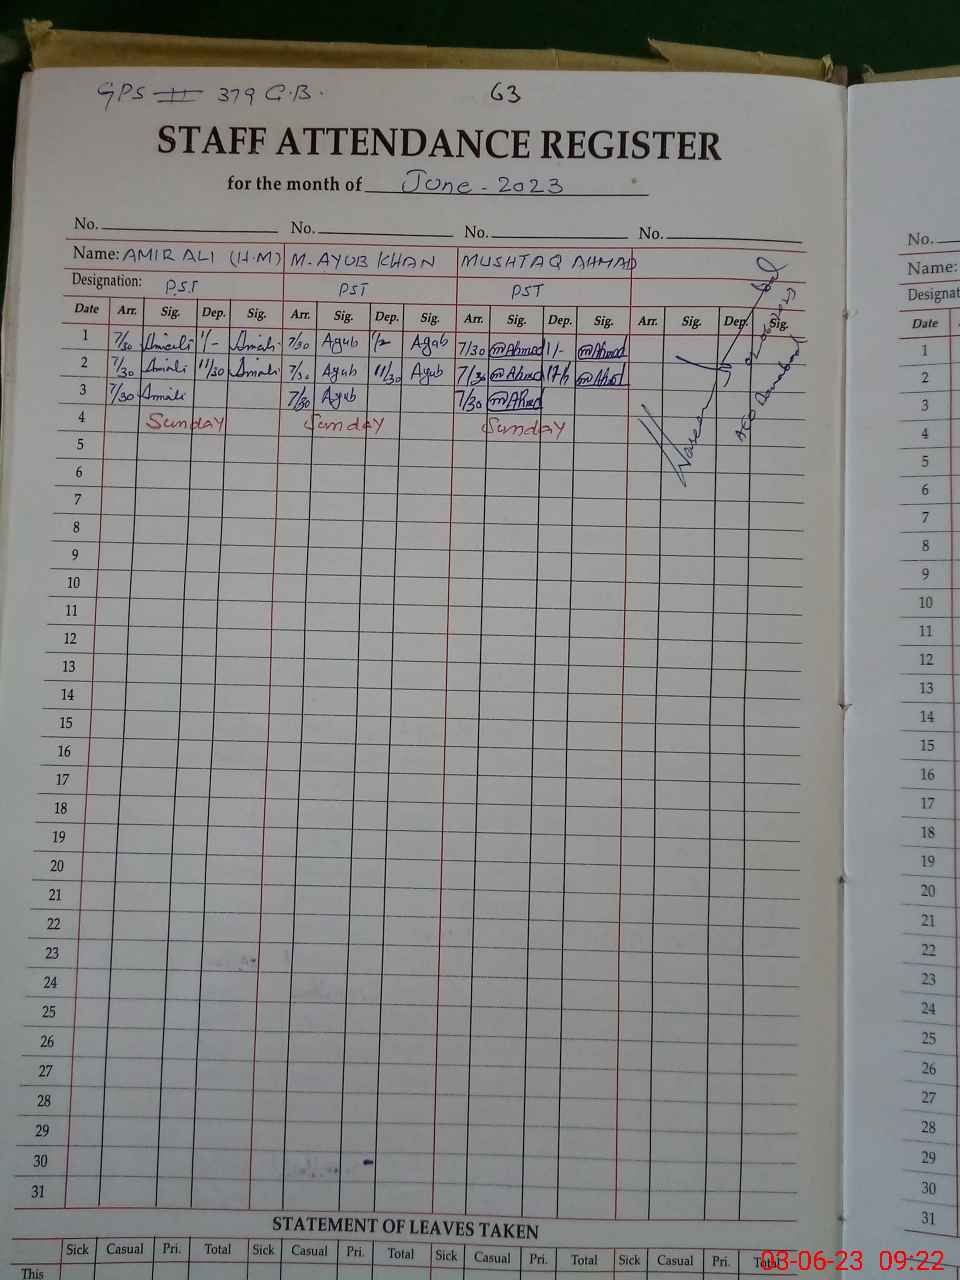 GPS # 379 G.B.
63
STAFF ATTENDANCE REGISTER
for the month of June - 2023
No. No. No. No.
Name: AMIR ALI (H.M) M. AYUB KHAN MUSHTAQ AHMAD
Designation: P.S.T PST PST
Date Arr. Sig. Dep. Sig. Arr. Sig. Dep. Sig. Arr. Sig. Dep. Sig. Arr. Sig. Dep. Sig.
1 7/30 Amirali 1/- Amirali 7/30 Ayub Ayub 7/30 mAhmad 1/- mAhmad
2 7/30 Amirali 11/30 Amirali 7/30 Ayub 11/30 Ayub 7/30 mAhmad mAhmad
3 7/30 Amirali 7/30 Ayub 7/30 mAhmad
4 Sunday Sunday Sunday
5
6
7
8
9
10
11
12
13
14
15
16
17
18
19
20
21
22
23
24
25
26
27
28
29
30
31
STATEMENT OF LEAVES TAKEN
Sick Casual Pri. Total Sick Casual Pri. Total Sick Casual Pri. Total Sick Casual Pri. Total
This
No.
Name:
Designat
Date
1
2
3
4
5
6
7
8
9
10
11
12
13
14
15
16
17
18
19
20
21
22
23
24
25
26
27
28
29
30
31
03-06-23 09:22